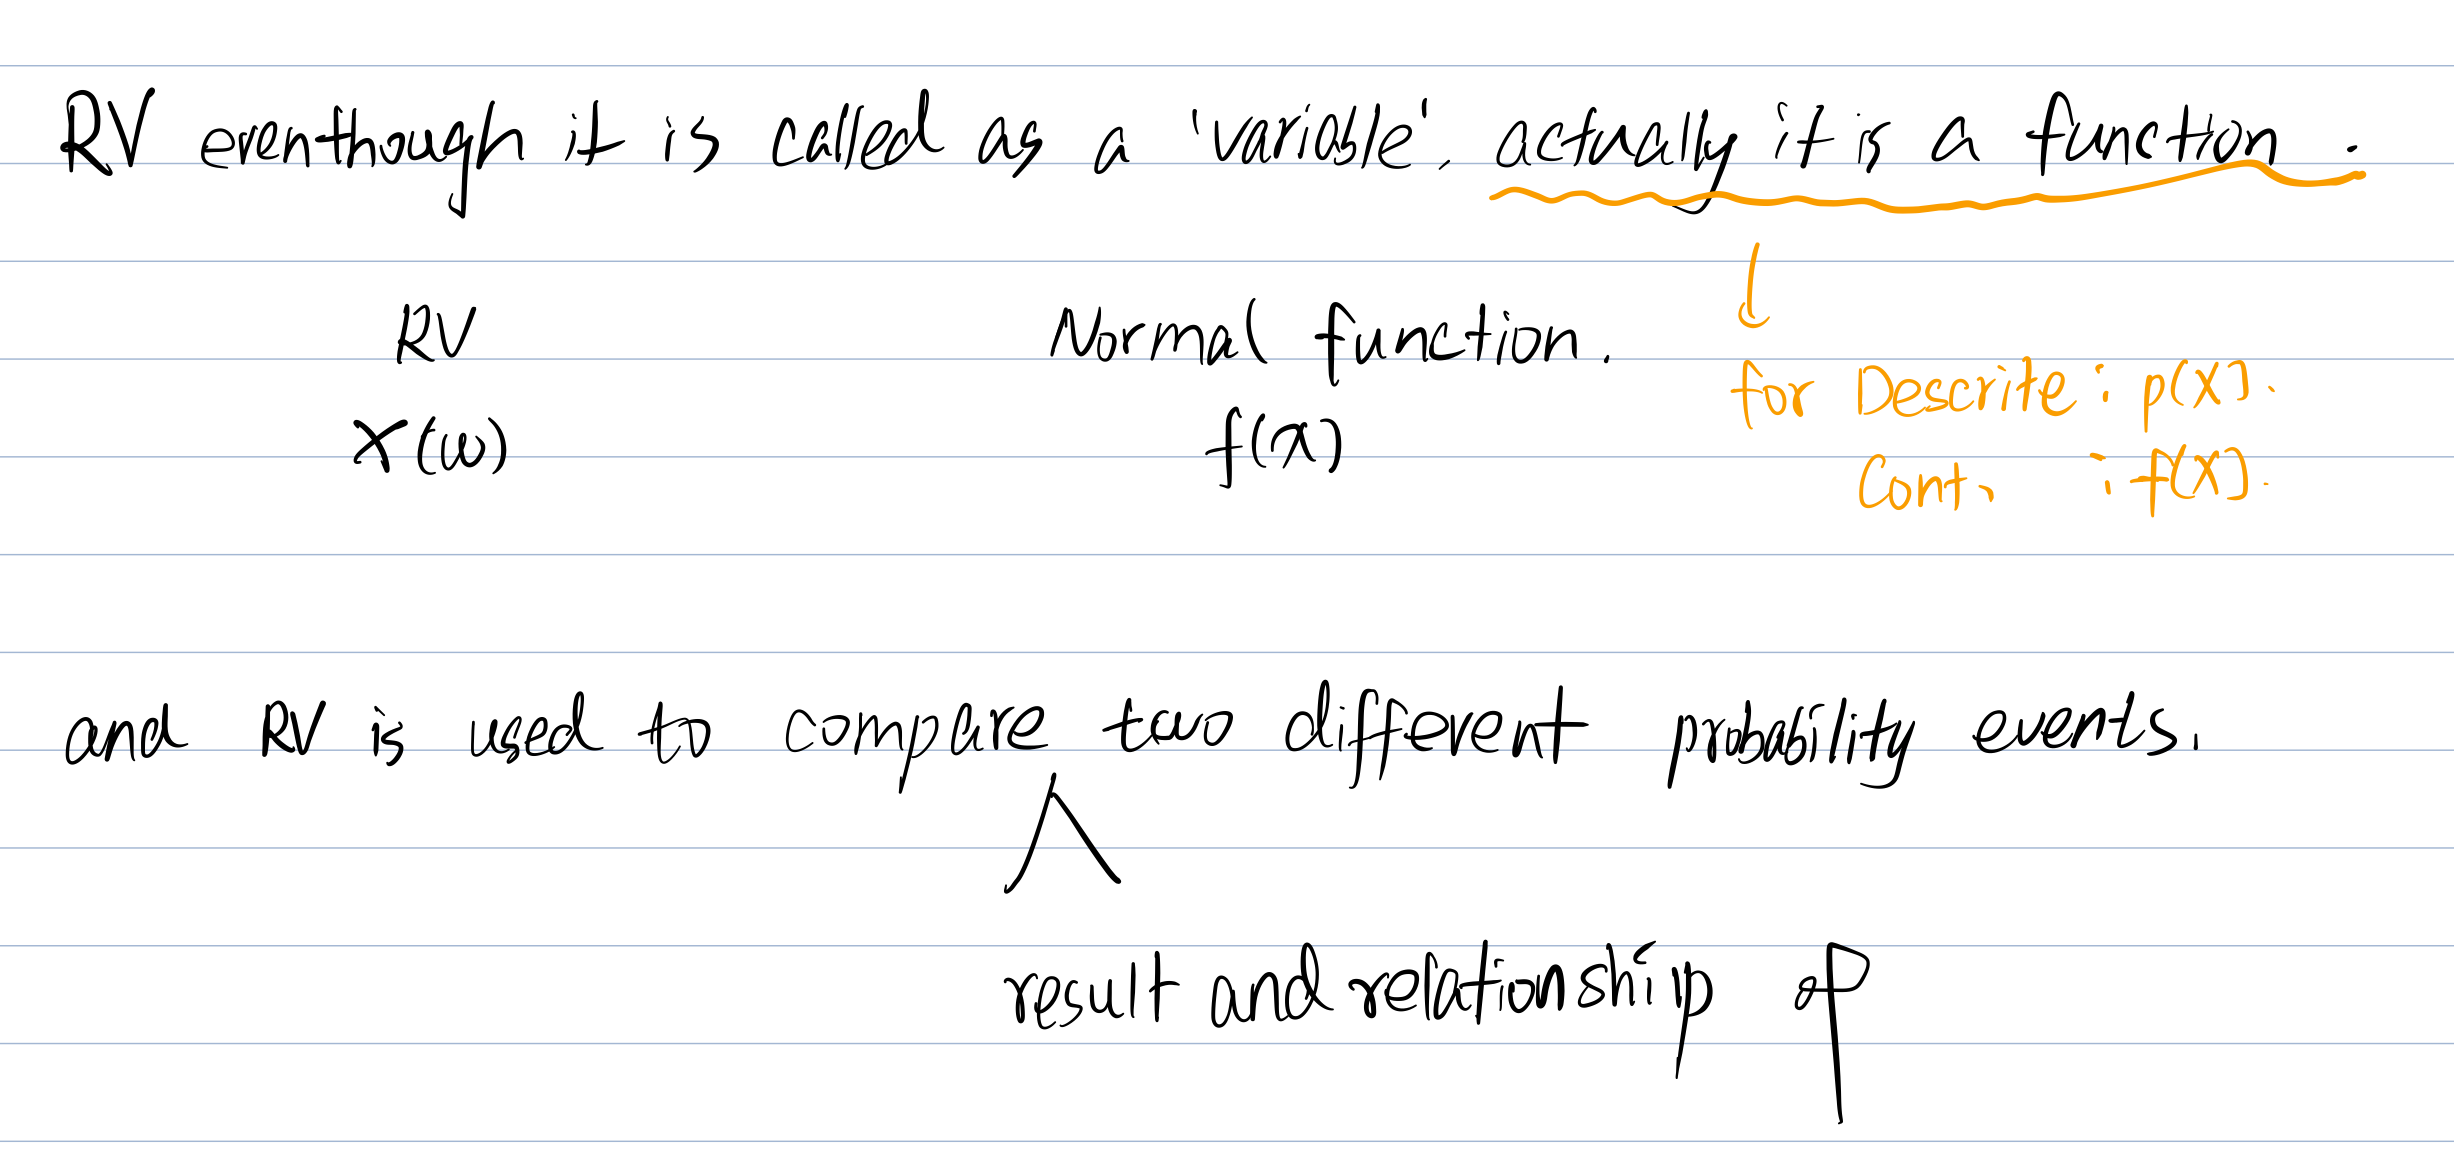 RV eventhough it is called as a 'variable', actually it is a function.
RV Normal function.
for Descrite : p(X).
X(ω) f(x)
Cont. : f(X).
and RV is used to compare two different probability events.
result and relationship of